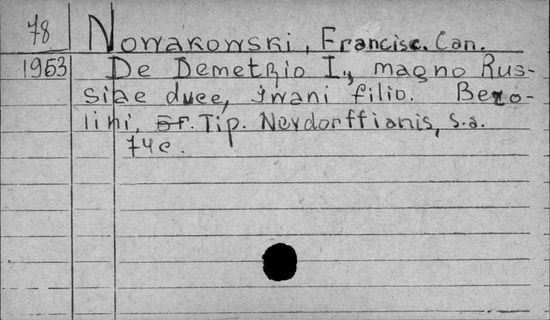 78 Nowakowski, Francisc. Can.
1953 De Demetrio I., magno Rus-
siae duce, Iwani filio. Bero-
lini, Tip. Neydorffianis, s.a.
74 c.